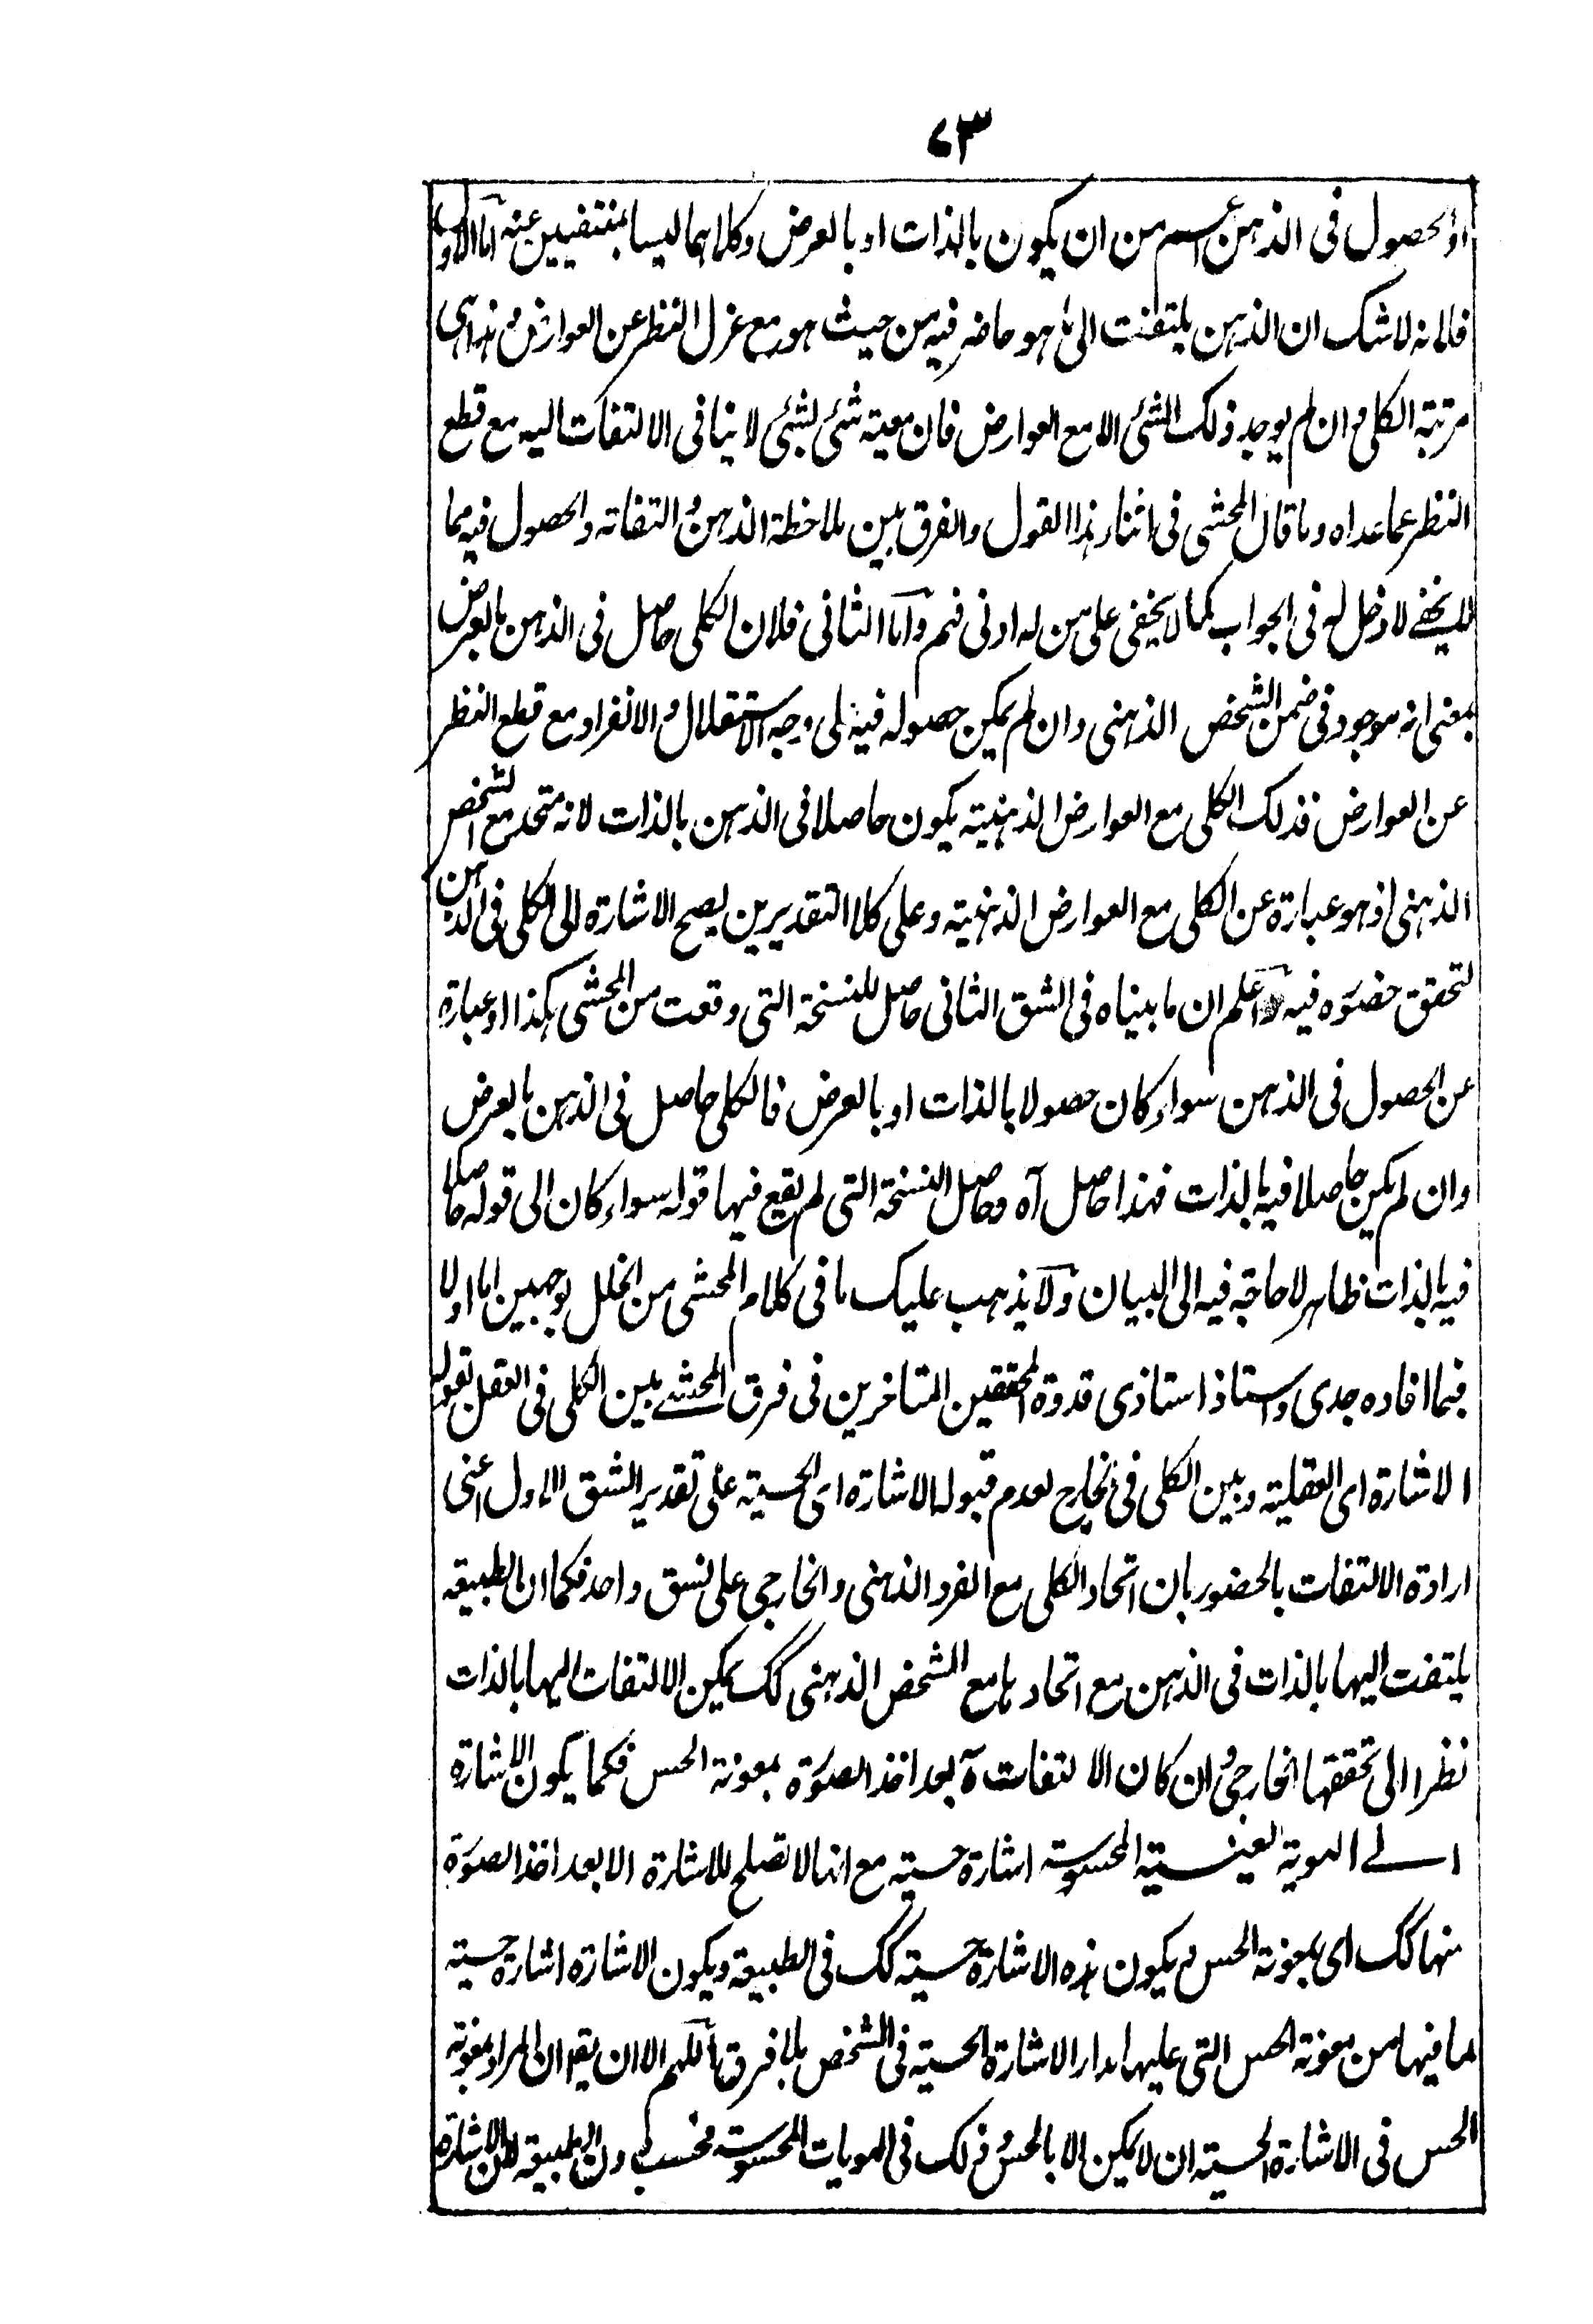 ٧٣
او الحصول فى الذهن اعم من ان يكون بالذات او بالعرض وكلاهما ليسا بمنتفيين عنه اما الاول
فلانه لا شك ان الذهن يلتفت الى ما هو حاضر فيه من حيث هو مع عزل النظر عن العوارض وهذا هى
مرتبة الكلى وان لم يوجد ذلك الشئ الا مع العوارض فان معية شئ لشئ لا ينافى الالتفات اليه مع قطع
النظر عما عداه وما قال المحشى فى اثناء هذا القول والفرق بين ملاحظة الذهن والتفاته والحصول فيه مما
لا يخفى لا دخل له فى الجواب كما لا يخفى على من له ادنى فهم واما الثانى فلان الكلى حاصل فى الذهن بالعرض
بمعنى انه موجود فى ضمن الشخص الذهنى وان لم يمكن حصوله فيه على وجه الاستقلال والانفراد مع قطع النظر
عن العوارض فذلك الكلى مع العوارض الذهنية يكون حاصلا فى الذهن بالذات لانه متحد مع الشخص
الذهنى اذ هو عبارة عن الكلى مع العوارض الذهنية وعلى كلا التقديرين يصح الاشارة الى الكلى فى الذهن
لتحقق حضوره فيه واعلم ان ما بيناه فى الشق الثانى حاصل للنسخة التى وقعت من المحشى هكذا او عبارة
عن الحصول فى الذهن سواء كان حصولا بالذات او بالعرض فالكلى حاصل فى الذهن بالعرض
وان لم يكن حاصلا فيه بالذات فهذا حاصل آه وحاصل النسخة التى لم يقع فيها قوله سواء كان الى قوله حاصلا
فيه بالذات ظاهر لا حاجة فيه الى البيان ولا يذهب عليك ما فى كلام المحشى من الخلل بوجهين اما اولا
فبما افاده جدى واستاذ استاذى قدوة المحققين المتاخرين فى فرق المحشى بين الكلى فى العقل بقوله
الاشارة اى العقلية وبين الكلى فى الخارج لعدم قبوله الاشارة اى الحسية على تقدير الشق الاول اعنى
ارادة الالتفات بالحضور بان اتحاد الكلى مع الفرد الذهنى والخارجى على نسق واحد فكما ان الطبيعة
يلتفت اليها بالذات فى الذهن مع اتحادها مع الشخص الذهنى كك يمكن الالتفات اليها بالذات
نظرا الى تحققها الخارجى وان كان الالتفات ه بعد اخذ الصورة بمعونة الحس فكما يكون الاشارة
الى الهوية العينية المحسوسة اشارة حسية مع انها لا تصلح للاشارة الا بعد اخذ الصورة
منها كك اى بمعونة الحس ويكون هذه الاشارة حسية كك فى الطبيعة ويكون الاشارة اشارة حسية
لما فيها من معونة الحس التى عليها مدار الاشارة الحسية فى الشخص بلا فرق اللهم الا ان يقم ان المراد بمعونة
الحس فى الاشارة الحسية ان لا يمكن الا بالحس وذلك فى الهويات المحسوسة فحسب دون الطبيعة لان الاشارة